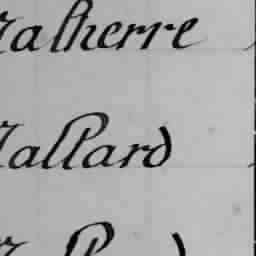 Malherre
Mallard